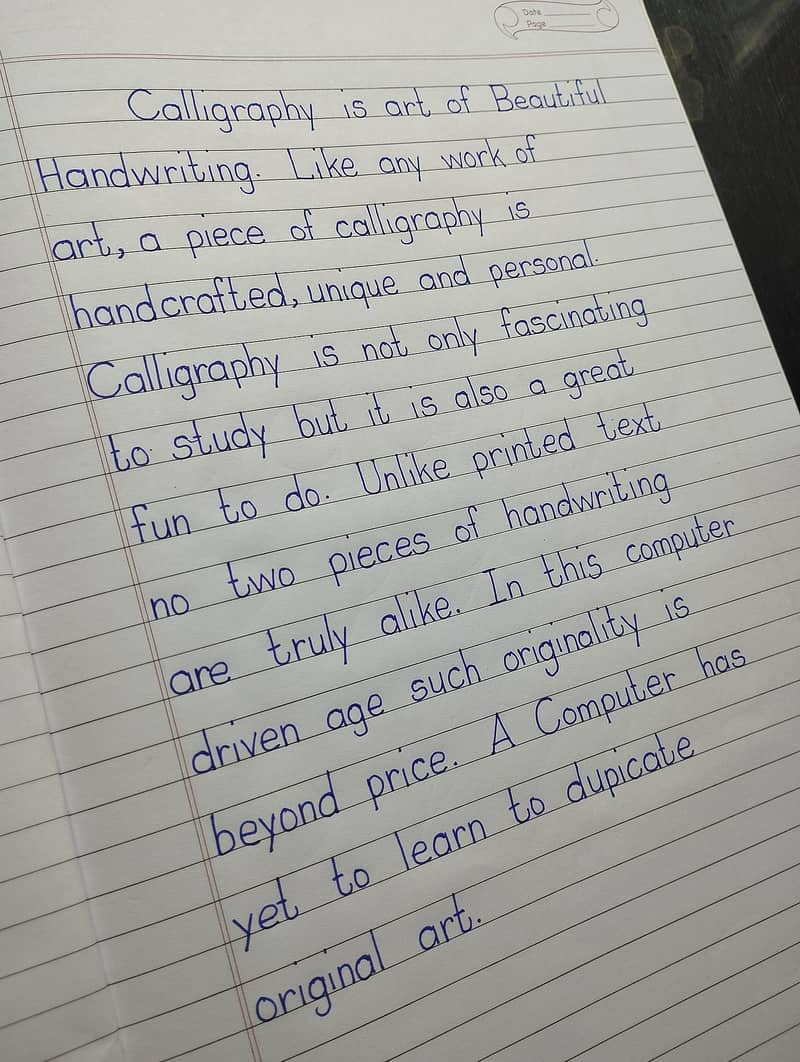 Date
Page
Calligraphy is art of Beautiful
Handwriting. Like any work of
art, a piece of calligraphy is
handcrafted, unique and personal.
Calligraphy is not only fascinating
to study but it is also a great
fun to do. Unlike printed text
no two pieces of handwriting
are truly alike. In this computer
driven age such originality is
beyond price. A Computer has
yet to learn to dupicate
original art.